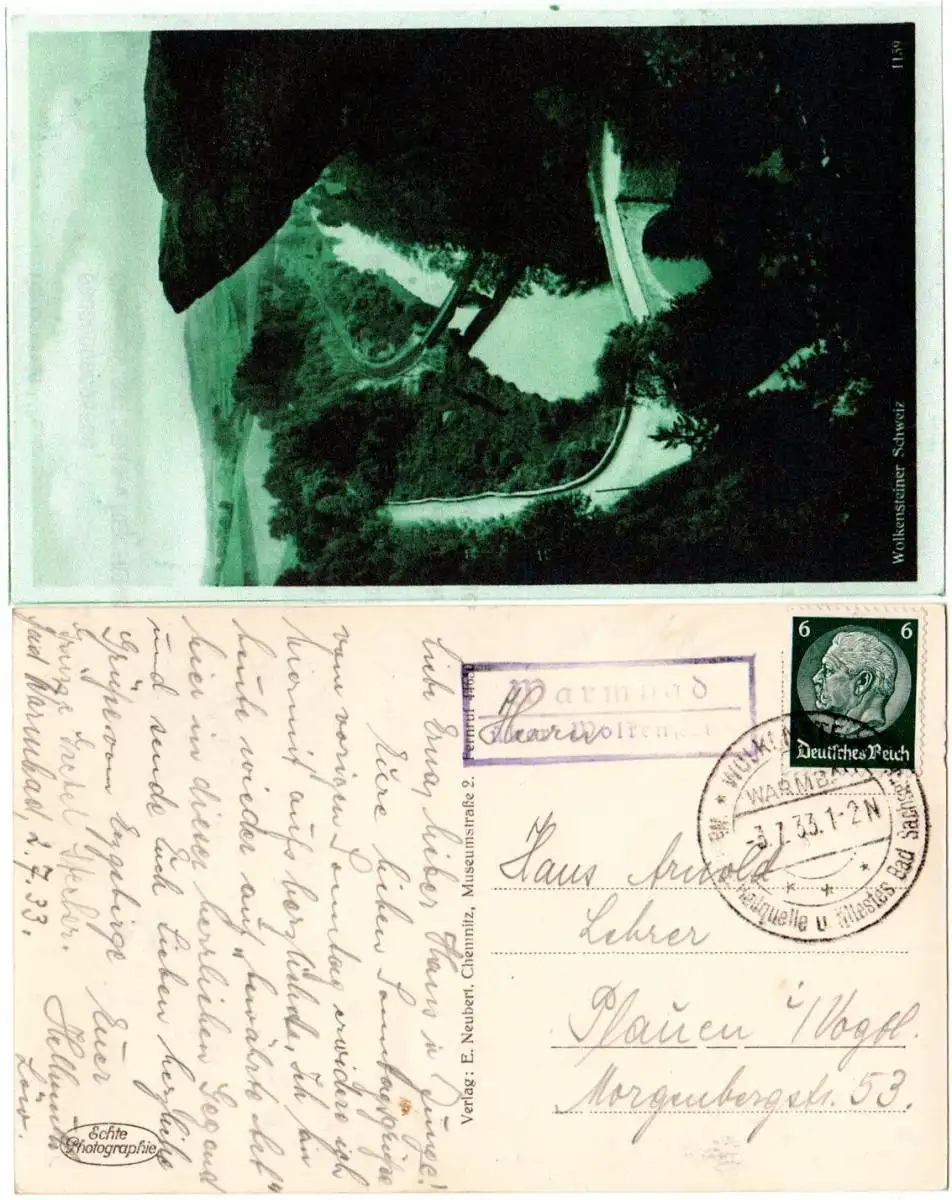 Wolkensteiner Schweiz
1139
Liebe Erna, lieber Hans u. Junge!
Eure lieben Sonntagsgrüße
vom vorigen Sonntag erwidere ich
hiermit aufs herzlichste. Ich bin
heute wieder auf
hier in dieser herrlichen Gegend
und sende Euch lieben herzliche
Grüße vom Erzgebirge Euer
Hellmuth
Löw.
Bad Warmbad, 2.7.33.
Echte
Photographie
Verlag: E. Neubert, Chemnitz, Museumstraße 2. Fernruf 44650
Warmbad
Herrn
6 6
Deutsches Reich
WARMBAD
-3.7.33.1-2N
quelle u. ältestes Bad Sachsens
Hans Arnold
Lehrer
Plauen i/Vogtl.
Morgenbergstr. 53.